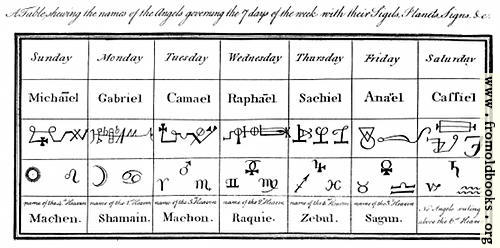 A Table shewing the names of the Angels governing the 7 days of the week with their Sigils, Planets, Signs, &c.
Sunday Monday Tuesday Wednesday Thursday Friday Saturday
Michaïel Gabriel Camael Raphaël Sachiel Anaël Caffiel
name of the 4th Heaven name of the 1st Heaven name of the 5th Heaven name of the 2d Heaven name of the 6th Heaven name of the 3d Heaven No Angels ruling
Machen. Shamain. Machon. Raquie. Zebul. Sagun. above the 6th Heaven
www.fromoldbooks.org